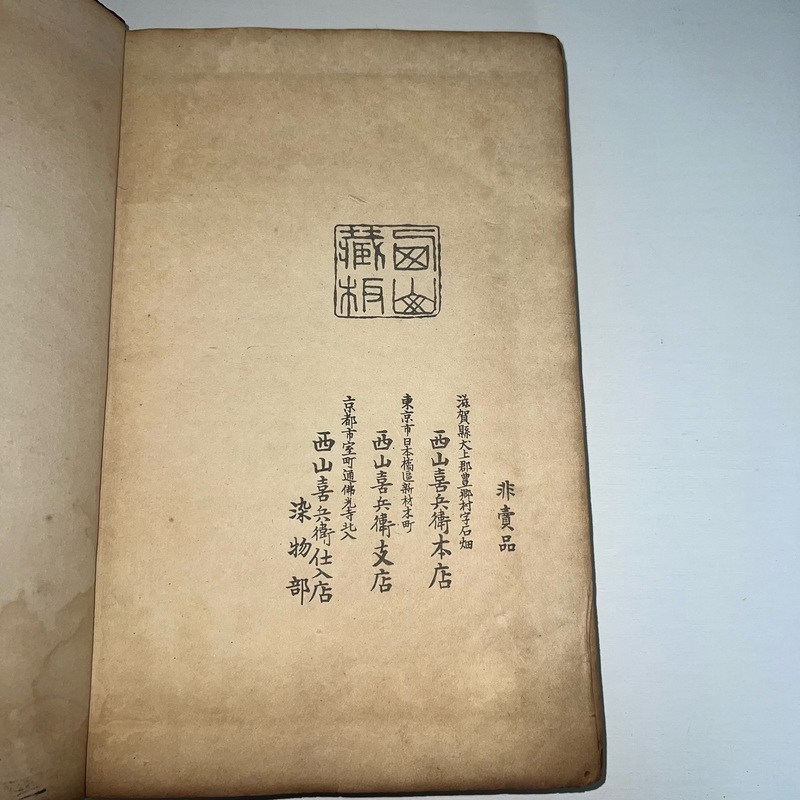 西山
藏板
非賣品
滋賀縣犬上郡豊郷村字石畑
西山喜兵衛本店
東京市日本橋區新材木町
西山喜兵衛支店
京都市室町通佛光寺北入
西山喜兵衛仕入店
染物部